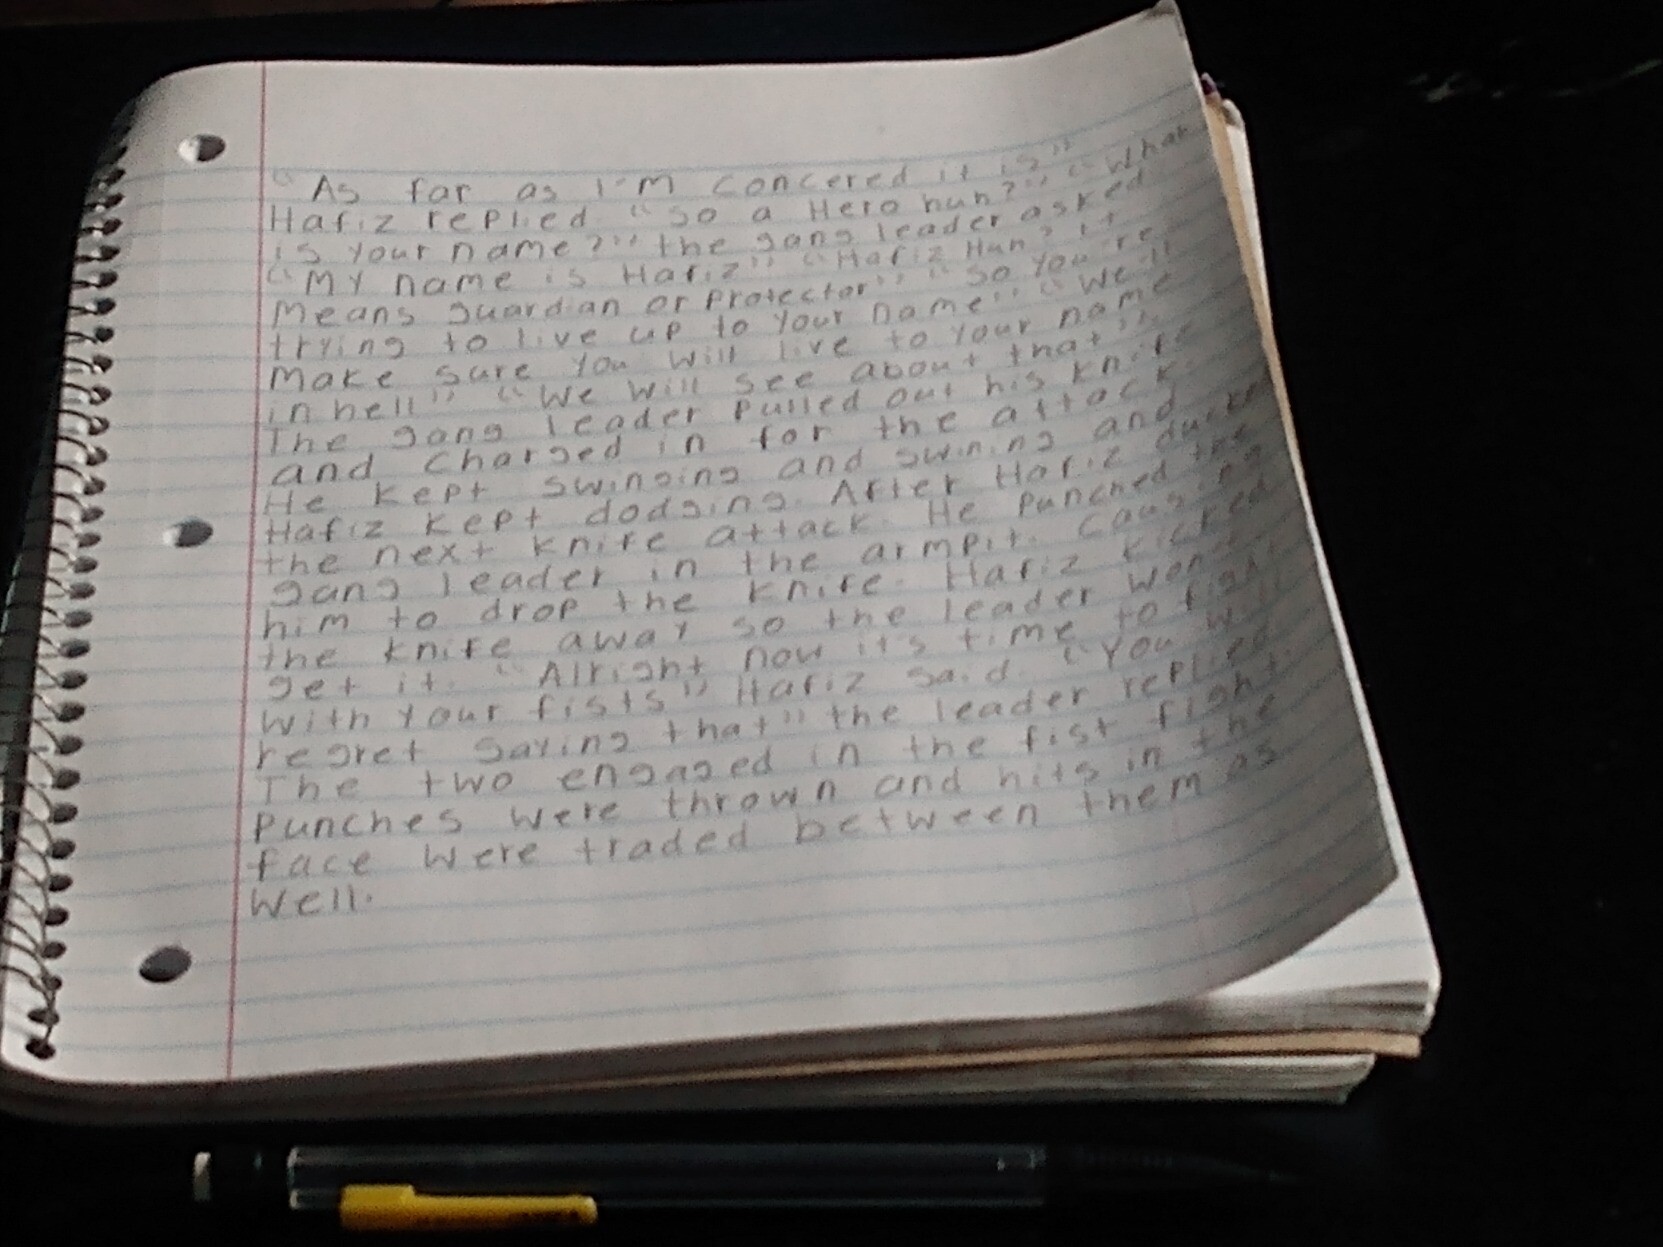 "As far as I'm concered it is"
Hafiz replied "so a Hero huh?" "What
is your name?" the gang leader asked
"My name is Hafiz" "Hafiz Huh? it
Means guardian or protector" "So you're
trying to live up to your name" "We'll
Make sure you will live to your name
in hell" "We will see about that".
The gang leader pulled out his knife
and charged in for the attack.
He kept swinging and swining and
Hafiz kept dodging. After Hafiz ducked
the next knife attack. He punched the
gang leader in the armpit. Causing
him to drop the knife. Hafiz kicked
the knife away so the leader won't
get it. "Alright now it's time to fight
with your fists" Hafiz said. "You will
regret saying that" the leader replied.
The two engaged in the fist fight.
Punches were thrown and hits in the
face were traded between them as
well.